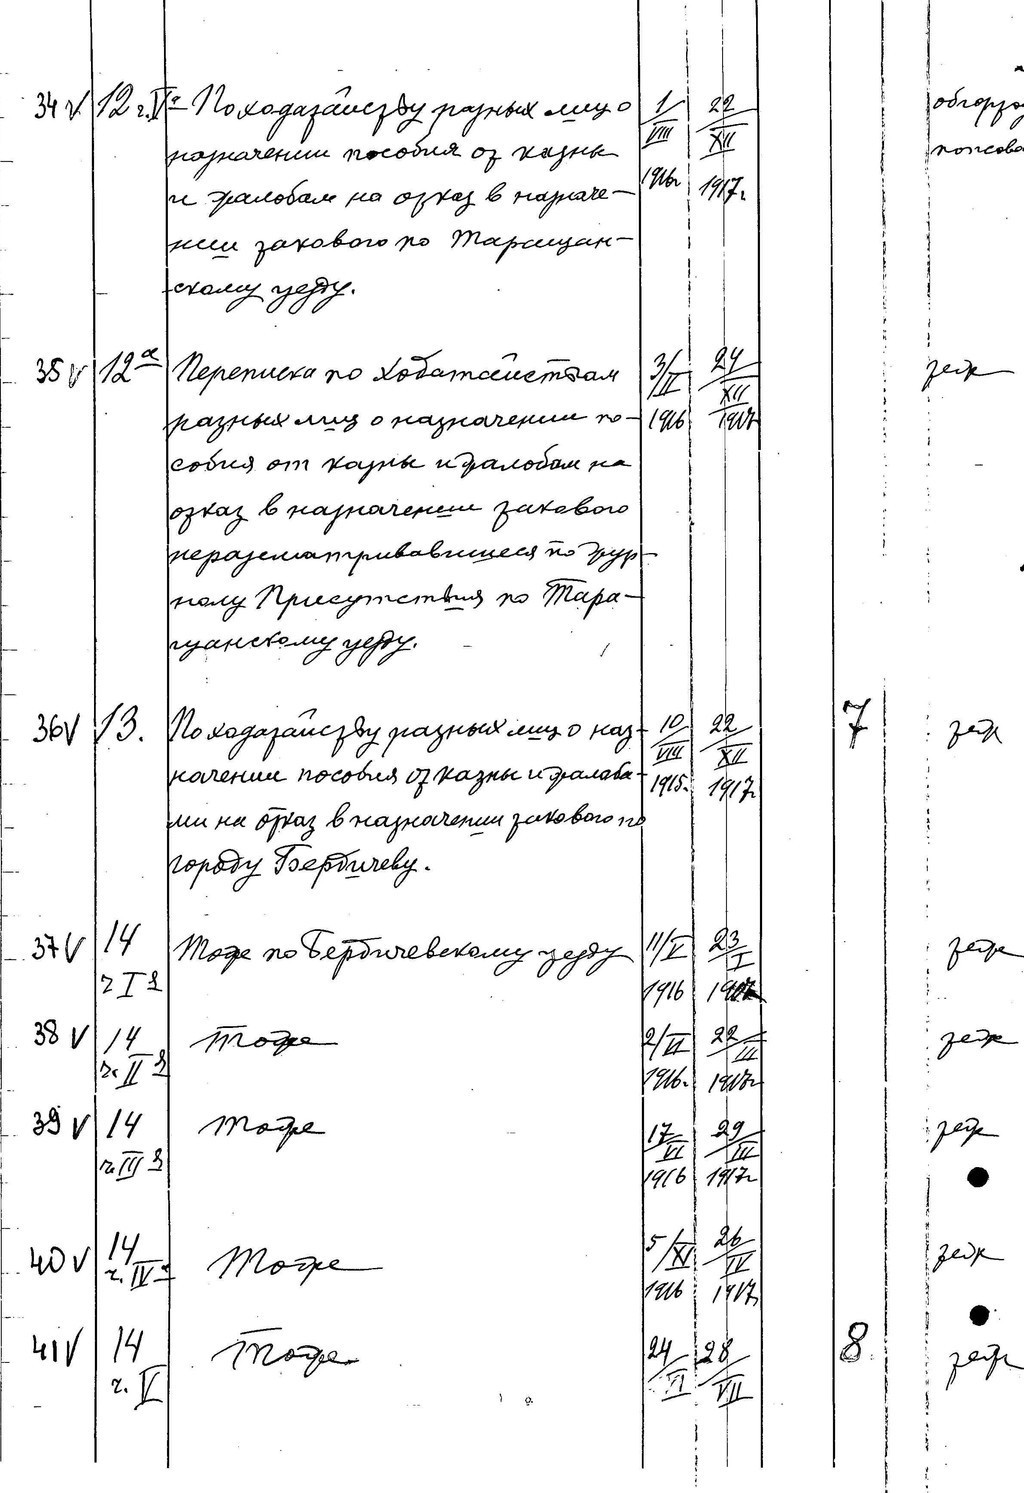 34 V 12 ч. V По ходатайству разных лиц о 1/VIII 22/XII
назначении пособия от казны
и жалобам на отказ в назначе- 1916г 1917г.
нии такового по Таращан-
скому уезду.
35 V 12а Переписка по ходатайствам 3/II 24/XII
разных лиц о назначении по- 1916 1917
собия от казны и жалобам на
отказ в назначении такового
нерассматривавшиеся по
Присутствия по Тара-
щанскому уезду.
36 V 13. По ходатайству разных лиц о наз- 10/VIII 22/XII 7
начении пособия от казны и жалоба- 1915г. 1917г
ми на отказ в назначении такового по
городу Бердичеву.
37 V 14 Тоже по Бердичевскому уезду 11/V 23/I
ч I 1916 1917
38 V 14 Тоже 2/VI 22/III
ч. II 1916г. 1917г
39 V 14 Тоже 17/VI 29/III
ч. III 1916 1917г
40 V 14 Тоже 5/XI 26/IV
ч. IV 1916 1917
41 V 14 Тоже 24/VI 28/VII 8
ч. V